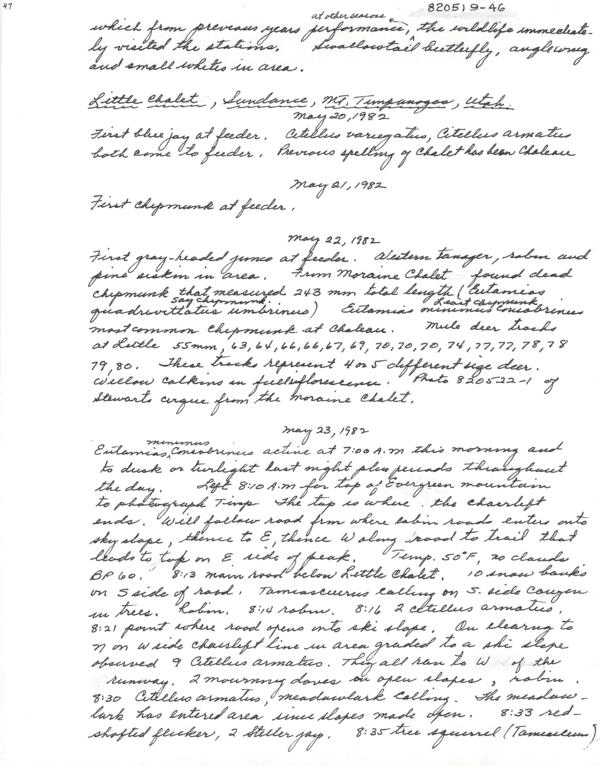 47
820519-46
which from previous years performance, at other seasons, the wildlife immediate-
ly visited the stations. Swallowtail butterfly, anglewing
and small whites in area.
Little Chalet, Sundance, Mt. Timpanogos, Utah.
May 20, 1982
First blue jay at feeder. Citellus variegatus, Citellus armatus
both come to feeder. Previous spelling of Chalet has been Chaleau
May 21, 1982
First chipmunk at feeder.
May 22, 1982
First gray-headed junco at feeder. Western tanager, robin and
pine siskin in area. From Moraine Chalet found dead
chipmunk that measured 243 mm total length (Eutamias
quadrivittatus umbrinus) say chipmunk. Eutamias minimus consobrinus Least chipmunk
most common chipmunk at Chaleau. Mule deer tracks
at Little 55mm, 63, 64, 66, 66, 67, 69, 70, 70, 70, 74, 77, 77, 78, 78
79, 80. These tracks represent 4 or 5 different size deer.
Willow catkins in full inflorescence. Photo 820522-1 of
Stewarts cirque from the Moraine Chalet.
May 23, 1982
Eutamias minimus consobrinus active at 7:00 A.M this morning and
to dusk or twilight last night plus periods throughout
the day. Left 8:10 A.M for top of Evergreen mountain
to photograph Timp The top is where the chairlift
ends. Will follow road from where cabin roads enters onto
sky slope, thence to E, thence W along road to trail that
leads to top on E side of peak. Temp. 50°F, no clouds
BP 60. 8:13 main road below Little Chalet. 10 snow banks
on S side of road. Tamiasciurus calling on S. side canyon
in trees. Robin. 8:14 robin. 8:16 2 citellus armatus.
8:21 point where road opens into ski slope. On clearing to
N on W side chairlift line in area graded to a ski slope
observed 9 Citellus armatus. They all ran to W of the
runway. 2 mourning doves on open slopes, robin.
8:30 Citellus armatus, meadowlark calling. The meadow-
lark has entered area since slopes made open. 8:33 red-
shafted flicker, 2 Steller jay. 8:35 tree squirrel (Tamiasciurus)